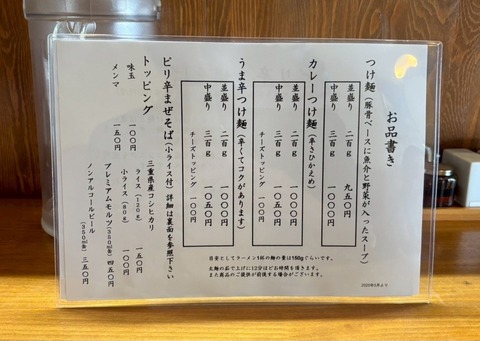 お品書き
つけ麺（豚骨ベースに魚介と野菜が入ったスープ）
並盛り 二百g 九五〇円
中盛り 三百g 一〇〇〇円
カレーつけ麺（辛さひかえめ）
並盛り 二百g 一〇〇〇円
中盛り 三百g 一〇五〇円
チーズトッピング 一〇〇円
うま辛つけ麺（辛くてコクがあります）
並盛り 二百g 一〇〇〇円
中盛り 三百g 一〇五〇円
チーズトッピング 一〇〇円
ピリ辛まぜそば（小ライス付）詳細は裏面を参照下さい
トッピング
味玉 一〇〇円
メンマ 一五〇円
三重県産コシヒカリ
ライス（120g） 一五〇円
小ライス（80g） 一〇〇円
プレミアムモルツ（350ml缶） 四五〇円
ノンアルコールビール（350ml缶） 三五〇円
目安としてラーメン1杯の麺の量は150gぐらいです。
太麺の茹で上げに12分ほどお時間を頂きます。
また商品のご提供が前後する場合がございます。